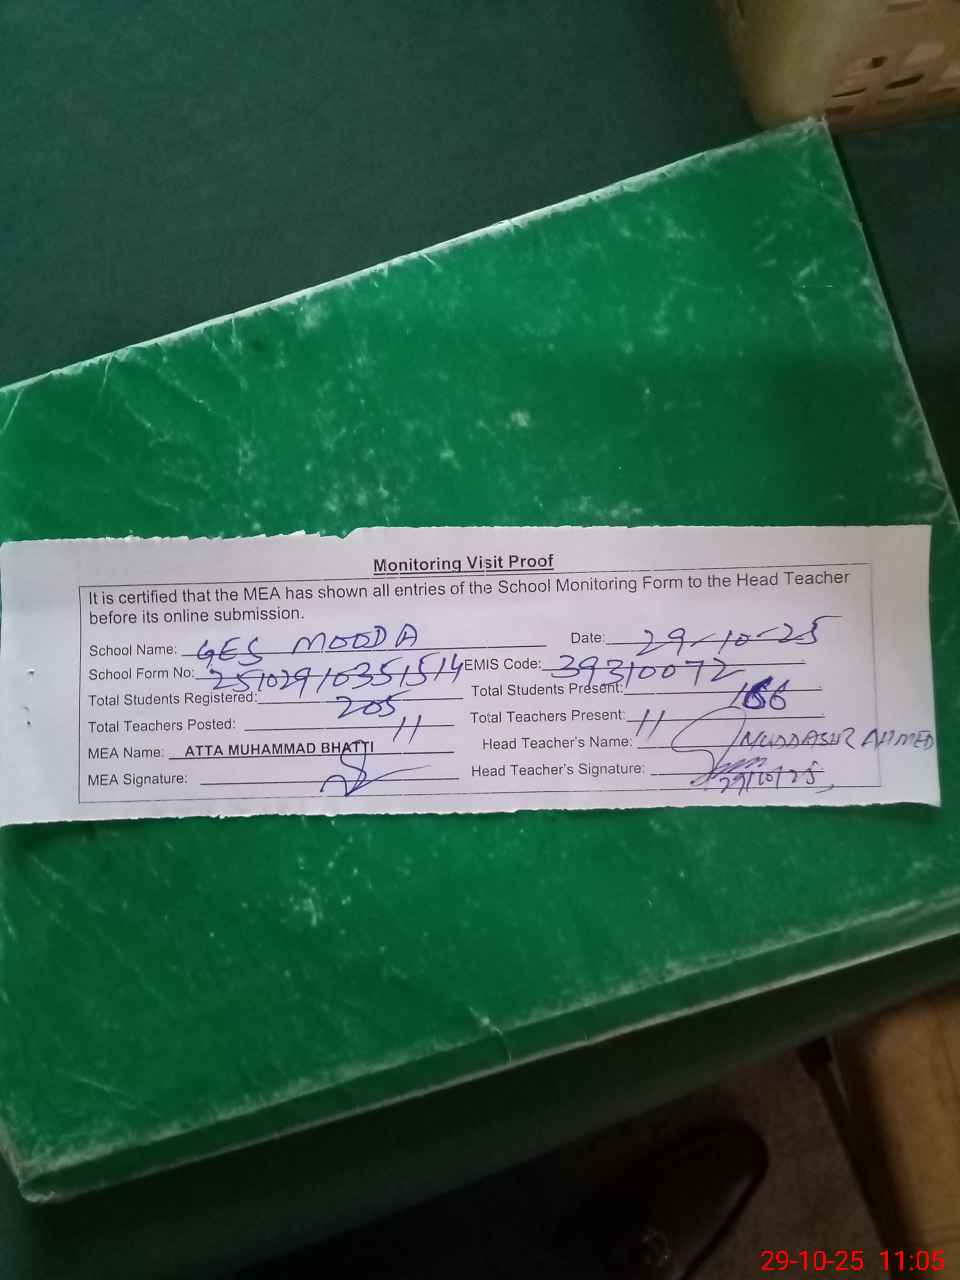 Monitoring Visit Proof
It is certified that the MEA has shown all entries of the School Monitoring Form to the Head Teacher
before its online submission.
School Name: GES MOODA Date: 29-10-25
School Form No: 25102910351514 EMIS Code: 39310072
Total Students Registered: 205 Total Students Present: 166
Total Teachers Posted: 11 Total Teachers Present: 11
MEA Name: ATTA MUHAMMAD BHATTI Head Teacher's Name: MUDDASUR AHMED
MEA Signature: Head Teacher's Signature:
29/10/25
29-10-25 11:05